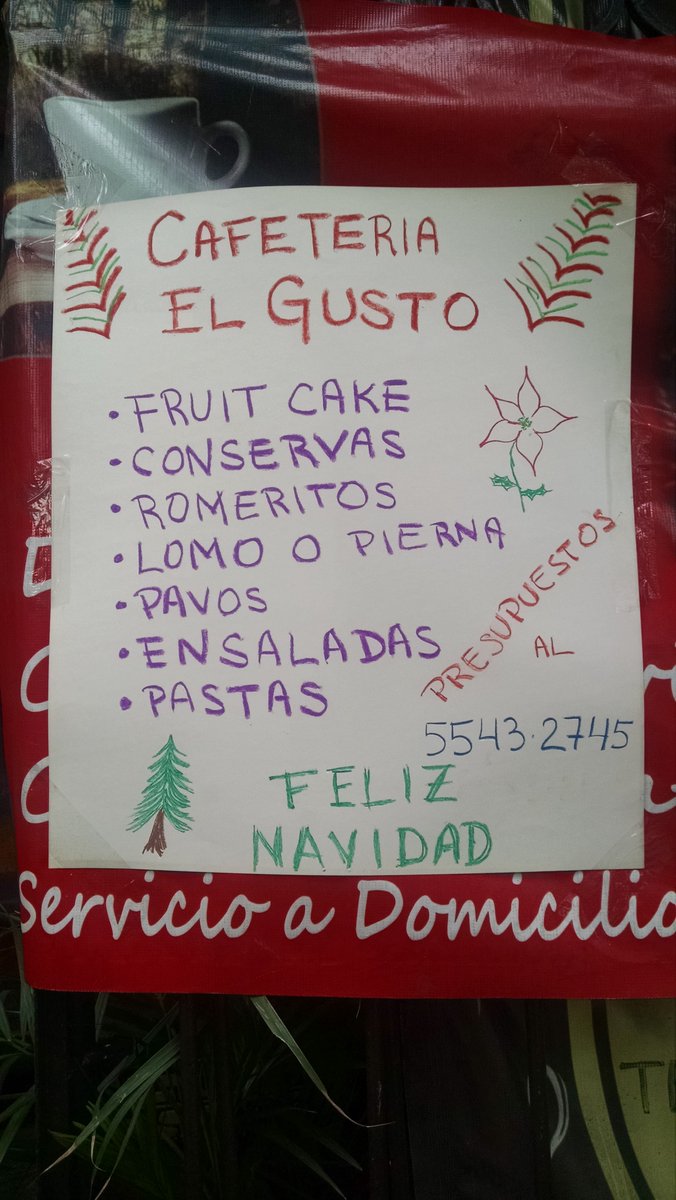 CAFETERIA
EL GUSTO
• FRUIT CAKE
• CONSERVAS
• ROMERITOS
• LOMO O PIERNA
• PAVOS
• ENSALADAS
• PASTAS
PRESUPUESTOS
AL
5543·2745
FELIZ
NAVIDAD
Servicio a Domicilio